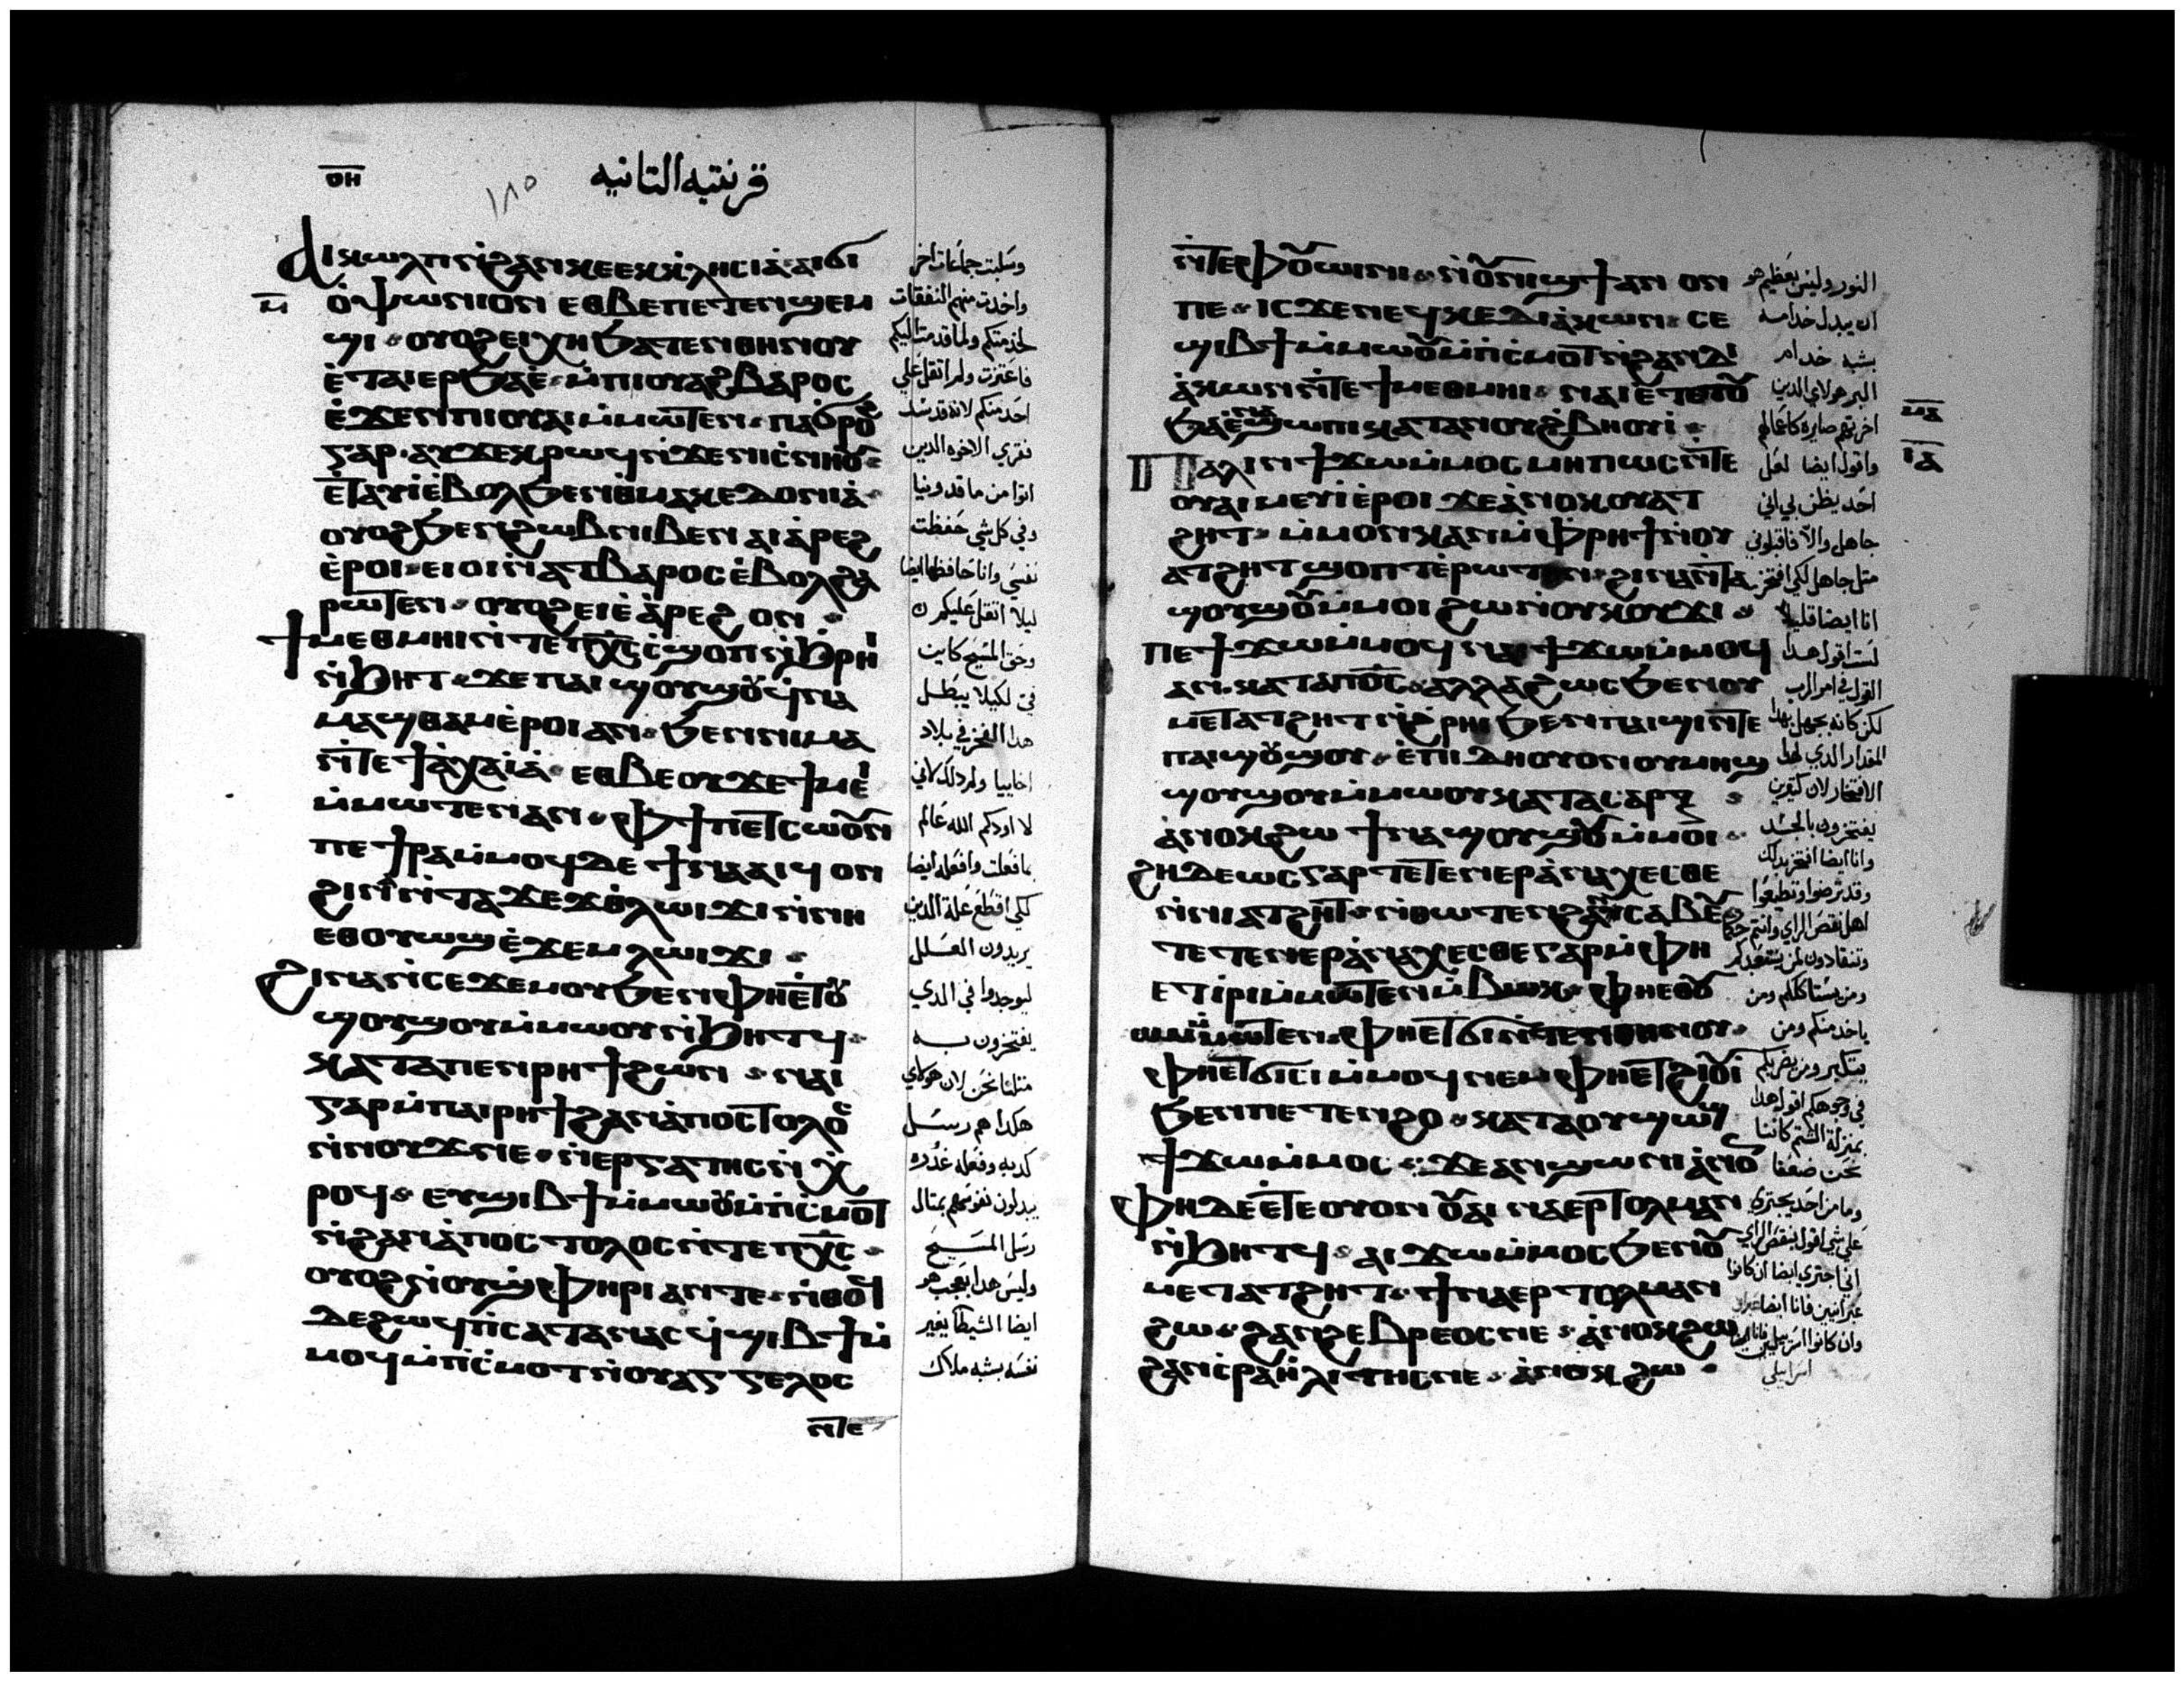 ⲟⲏ
١٨٥
قرنتيه التانيه
ⲁⲓⲕⲱⲗⲡ ⲛ̇ϩⲁⲛⲕⲉⲉⲕⲕⲗⲏⲥⲓⲁ̀ ⲁⲓϭⲓ
ⲟ̀ⲯⲱⲛⲓⲟⲛ ⲉⲑⲃⲉⲡⲉⲧⲉⲛϣⲉⲙ
ϣⲓ · ⲟⲩⲟϩ ⲉⲓⲭⲏ ϧⲁⲧⲉⲛⲑⲏⲛⲟⲩ
ⲉ̀ⲧⲁⲓⲉⲣϧⲁⲉ̀ · ⲙ̇ⲡⲓⲟⲩⲁϩⲃⲁⲣⲟⲥ
ⲉ̀ϫⲉⲛ ⲡⲓⲟⲩⲁⲓ ⲙ̇ⲙⲱⲧⲉⲛ · ⲡⲁϭⲣⲟϩ
ⲅⲁⲣ · ⲁⲩϫⲉⲕⲣⲱϥ ⲛ̇ϫⲉⲛⲓⲥ̀ⲛⲏⲟⲩ
ⲉ̀ⲧⲁⲩⲓ̀ ⲉ̀ⲃⲟⲗϧⲉⲛ ⲑⲙⲁⲕⲉⲇⲟⲛⲓⲁ̀ ·
ⲟⲩⲟϩ ϧⲉⲛ ϩⲱⲃ ⲛⲓⲃⲉⲛ ⲁⲓⲁ̀ⲣⲉϩ
ⲉ̀ⲣⲟⲓ · ⲉⲓⲟⲓ ⲛ̇ⲁⲧⲃⲁⲣⲟⲥ ⲉ̀ⲃⲟⲗϩⲁ
ⲣⲱⲧⲉⲛ · ⲟⲩⲟϩ ⲉⲓⲉ̀ⲁ̀ⲣⲉϩ ⲟⲛ ·
ϯⲙⲉⲑⲙⲏⲓ ⲛ̇ⲧⲉⲡⲭ̅ⲥ̅ ⲥ̀ϣⲟⲡ ⲛ̇ϧⲣⲏⲓ
ⲛ̇ϧⲏⲧ · ϫⲉ ⲡⲁⲓϣⲟⲩϣⲟⲩ ϥ̀ⲛⲁ
ⲙⲁϣⲑⲁⲙ ⲉ̀ⲣⲟⲓ ⲁⲛ · ϧⲉⲛ ⲛⲓⲙⲁ
ⲛ̇ⲧⲉ ϯⲁ̀ⲭⲁⲓⲁ̀ · ⲉⲑⲃⲉⲟⲩ ϫⲉ ϯⲙⲉⲓ
ⲙ̇ⲙⲱⲧⲉⲛ ⲁⲛ · ⲫϯ ⲡⲉⲧⲥⲱⲟⲩⲛ
ⲡⲉϯⲣⲁ ⲙ̇ⲙⲟϥ ⲇⲉ ϯⲛⲁⲁⲓϥ ⲟⲛ
ϩⲓⲛⲁ ⲛ̇ⲧⲁϫⲉϫⲗⲱⲓϫⲓ ⲛ̇ⲛⲏ
ⲉⲑⲟⲩⲱϣ ⲉ̀ϫⲉⲙ ⲗⲱⲓϫⲓ ·
ϩⲓⲛⲁ ⲛ̇ⲥⲉϫⲉⲙⲟⲩ ϧⲉⲛ ⲫⲏⲉ̀ⲧⲟⲩ
ϣⲟⲩϣⲟⲩ ⲙ̇ⲙⲱⲟⲩ ⲛ̇ϧⲏⲧϥ ·
ⲕⲁⲧⲁ ⲡⲉⲛⲣⲏϯ ϩⲱⲛ · ⲛⲁⲓ
ⲅⲁⲣ ⲙ̇ⲡⲁⲓⲣⲏϯ ϩⲁⲛⲁ̀ⲡⲟⲥⲧⲟⲗⲟⲥ
ⲛ̇ⲛⲟⲩϫ ⲛⲉ · ⲛ̇ⲉⲣⲅⲁⲧⲏⲥ ⲛ̇ⲭ̀
ⲣⲟϥ · ⲉⲩϣⲓⲃϯ ⲙ̇ⲙⲱⲟⲩ ⲙ̇ⲡⲥ̀ⲙⲟⲧ
ⲛ̇ϩⲁⲛⲁ̀ⲡⲟⲥⲧⲟⲗⲟⲥ ⲛ̇ⲧⲉ ⲡⲭ̅ⲥ̅ ·
ⲟⲩⲟϩ ⲛ̇ⲟⲩϣ̀ⲫⲏⲣⲓ ⲁⲛ ⲧⲉ · ⲛ̇ⲑⲟϥ
ⲇⲉ ϩⲱϥ ⲡ̀ⲥⲁⲧⲁⲛⲁⲥ ϥ̀ϣⲓⲃϯ ⲙ̇
ⲙⲟϥ ⲙ̇ⲡⲥ̀ⲙⲟⲧ ⲛ̇ⲟⲩⲁⲅⲅⲉⲗⲟⲥ
ⲛ̇ⲧⲉ
ⲛ̅
وسلبت جماعات اخر
واخدت منهم النفقات
لخدمتكم ولما قدمت اليكم
فاعتزت ولم اتقل علي
احد منكم لانه قد سد
فقري الاخوه الدين
اتوا من ماقدونيا
وفي كل شي حفظت
نفسي وانا حافظها ايضا
ليلا اتقل عليكم
وحق المسيح كاين
في لكيلا يبطل
هدا الفخر في بلاد
اخاييا ولم دلك لاني
لا اودكم الله عالم
بما فعلت وافعله ايضا
لكي اقطع علة الدين
يريدون العلل
ليوجدوا في الدي
يفتخرون به
متلنا نحن لان هولاي
هكدا هم رسل
كدبه وفعله غدره
يبدلون نفوسهم بمتال
رسل المسيح
وليس هدا بعجب هو
ايضا الشيطان يغير
نفسه بشبه ملاك
ⲛ̇ⲧⲉ ⲫⲟⲩⲱⲓⲛⲓ · ⲛ̇ⲟⲩⲛⲓϣϯ ⲁⲛ ⲟⲛ
ⲡⲉ · ⲓⲥϫⲉ ⲛⲉϥⲕⲉⲇⲓⲁ̀ⲕⲱⲛ · ⲥⲉ
ϣⲓⲃϯ ⲙ̇ⲙⲱⲟⲩ ⲙ̇ⲡⲥ̀ⲙⲟⲧ ⲛ̇ϩⲁⲛⲇⲓ
ⲁ̀ⲕⲱⲛ ⲛ̇ⲧⲉ ϯⲙⲉⲑⲙⲏⲓ · ⲛⲁⲓ ⲉ̀ⲧⲉⲧⲟⲩ
ϧⲁⲉ̀ ⲛⲁϣⲱⲡⲓ ⲕⲁⲧⲁ ⲛⲟⲩϩ̀ⲃⲏⲟⲩⲓ ·
ⲡⲁⲗⲓⲛ ϯϫⲱ ⲙ̇ⲙⲟⲥ ⲙⲏⲡⲱⲥ ⲛ̇ⲧⲉ
ⲟⲩⲁⲓ ⲙⲉⲩⲓ̀ ⲉ̀ⲣⲟⲓ ϫⲉ ⲁ̀ⲛⲟⲕ ⲟⲩⲁⲧ
ϩⲏⲧ · ⲙ̇ⲙⲟⲛ ⲕⲁⲛ ⲙ̇ⲫⲣⲏϯ ⲛ̇ⲟⲩ
ⲁⲧϩⲏⲧ ϣⲟⲡⲧ ⲉ̀ⲣⲱⲧⲉⲛ · ϩⲓⲛⲁ ⲛ̇ⲧⲁ
ϣⲟⲩϣⲟⲩ ⲙ̇ⲙⲟⲓ ϩⲱ ⲛ̇ⲟⲩⲕⲟⲩϫⲓ ·
ⲡⲉϯϫⲱ ⲙ̇ⲙⲟϥ ⲛⲁⲓ ϯϫⲱ ⲙ̇ⲙⲟϥ
ⲁⲛ · ⲕⲁⲧⲁ ⲡⲟ̅ⲥ̅ · ⲁⲗⲗⲁ ϩⲱⲥ ϧⲉⲛ ⲟⲩ
ⲙⲉⲧⲁⲧϩⲏⲧ ⲛ̇ϩ̀ⲣⲏⲓ ϧⲉⲛ ⲡⲁⲓϣⲓ ⲛ̇ⲧⲉ
ⲡⲁⲓϣⲟⲩϣⲟⲩ · ⲉ̀ⲡⲓⲇⲏ ⲟⲩⲟⲛ ⲟⲩⲙⲏϣ
ϣⲟⲩϣⲟⲩ ⲙ̇ⲙⲱⲟⲩ ⲕⲁⲧⲁ ⲥⲁⲣⲝ ·
ⲁ̀ⲛⲟⲕ ϩⲱ ϯⲛⲁϣⲟⲩϣⲟⲩ ⲙ̇ⲙⲟⲓ ·
ϩⲏⲇⲉⲱⲥ ⲅⲁⲣ ⲧⲉⲧⲉⲛⲉⲣⲁ̀ⲛⲁⲭⲉⲥⲑⲉ
ⲛ̇ⲛⲓⲁⲧϩⲏⲧ · ⲛ̇ⲑⲱⲧⲉⲛ ϩⲁⲛⲥⲁⲃⲉⲩ
ⲧⲉⲧⲉⲛⲉⲣⲁ̀ⲛⲁⲭⲉⲥⲑⲉ ⲅⲁⲣ ⲙ̇ⲫⲏ
ⲉⲧⲓ̀ⲣⲓ ⲙ̇ⲙⲱⲧⲉⲛ ⲙ̇ⲃⲱⲕ · ⲫⲏⲉⲑⲟⲩ
ⲱⲙ ⲙ̇ⲙⲱⲧⲉⲛ · ⲫⲏⲉⲧϭⲓ ⲛ̇ⲧⲉⲛⲑⲏⲛⲟⲩ ·
ⲫⲏⲉⲧϭⲓⲥⲓ ⲙ̇ⲙⲟϥ ⲛⲉⲙ ⲫⲏⲉⲧϩⲓⲟⲩⲓ
ϧⲉⲛ ⲡⲉⲧⲉⲛϩⲟ · ⲕⲁⲧⲁ ⲟⲩϣⲱϣ
ϯϫⲱ ⲙ̇ⲙⲟⲥ · ϫⲉ ⲁⲛϣⲱⲛⲓ ⲁ̀ⲛⲟⲛ
ⲫⲏ ⲇⲉ ⲉ̀ⲧⲉ ⲟⲩⲟⲛ ⲟⲩⲁⲓ ⲛⲁⲉⲣⲧⲟⲗⲙⲁⲛ
ⲛ̇ϧⲏⲧϥ · ⲁⲓϫⲱ ⲙ̇ⲙⲟⲥ ϧⲉⲛ ⲟⲩ
ⲙⲉⲧⲁⲧϩⲏⲧ · ϯⲛⲁⲉⲣⲧⲟⲗⲙⲁⲛ
ϩⲱ · ϩⲁⲛϩⲉⲃⲣⲉⲟⲥ ⲛⲉ · ⲁ̀ⲛⲟⲕ ϩⲱ
ϩⲁⲛⲓⲥ̀ⲣⲁⲏⲗⲓⲧⲏⲥ ⲛⲉ · ⲁ̀ⲛⲟⲕ ϩⲱ ·
النور وليس بعظيم هو
ان يبدل خدامه
بشبه خدام
البر هولاي الدين
اخرتهم صايره كاعمالهم
واقول ايضا لعل
احد يظن بي اني
جاهل والا فاقبلوني
متل جاهل لكي افتخر
انا ايضا قليلا
لست اقول هدا
القول في امر الرب
لكن كانه بجهل بهدا
المقدار الدي لهدا
الافتخار لان كتيرين
يفتخرون بالجسد
وانا ايضا افتخر بدلك
اهل نقص الراي وانتم حكما
وتنقادون لمن يستعبدكم
ومن يستاكلكم ومن
ياخد منكم ومن
يتكبر ومن يضربكم
في وجوهكم اقول هدا
بمنزلة الشتم كاننا
نحن ضعفا
وما من احد يجتري
علي شي اقول بنقص الراي
اني اجتري ايضا ان كانوا
عبرانيين فانا ايضا
اسراييلي
ⲛ̅ⲁ̅
ⲓ̅ⲁ̅